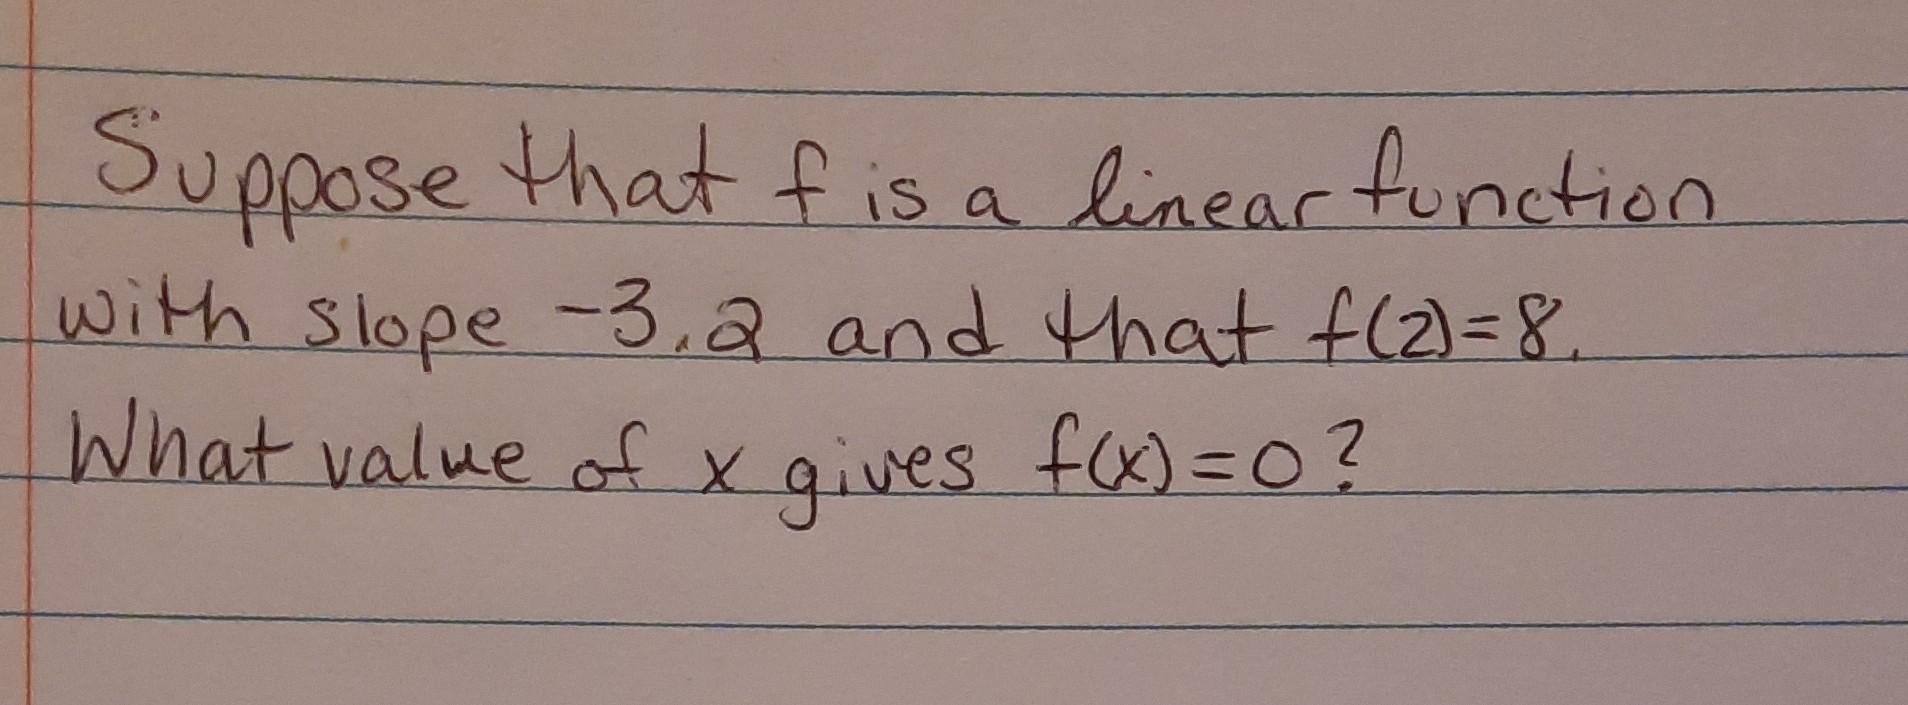 Suppose that f is a linear function
with slope -3.2 and that f(2)=8.
What value of x gives f(x)=0?